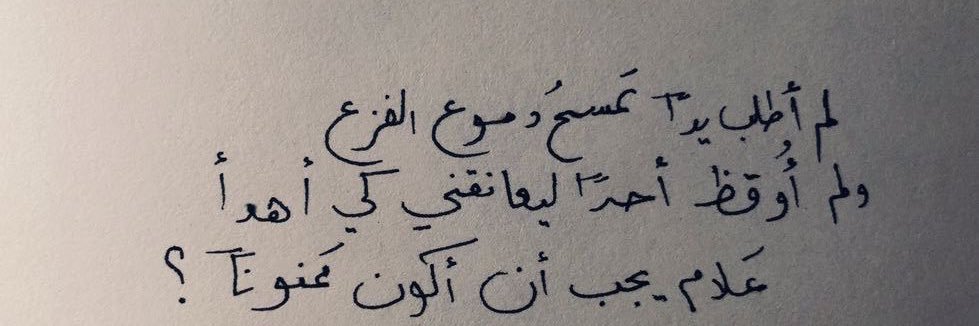 لم أطلب يدًا تمسحُ دموع الفزع
ولم أُوقظ أحدًا ليعانقني كي أهدأ
عَلام يجب أن أكون ممنونًا ؟